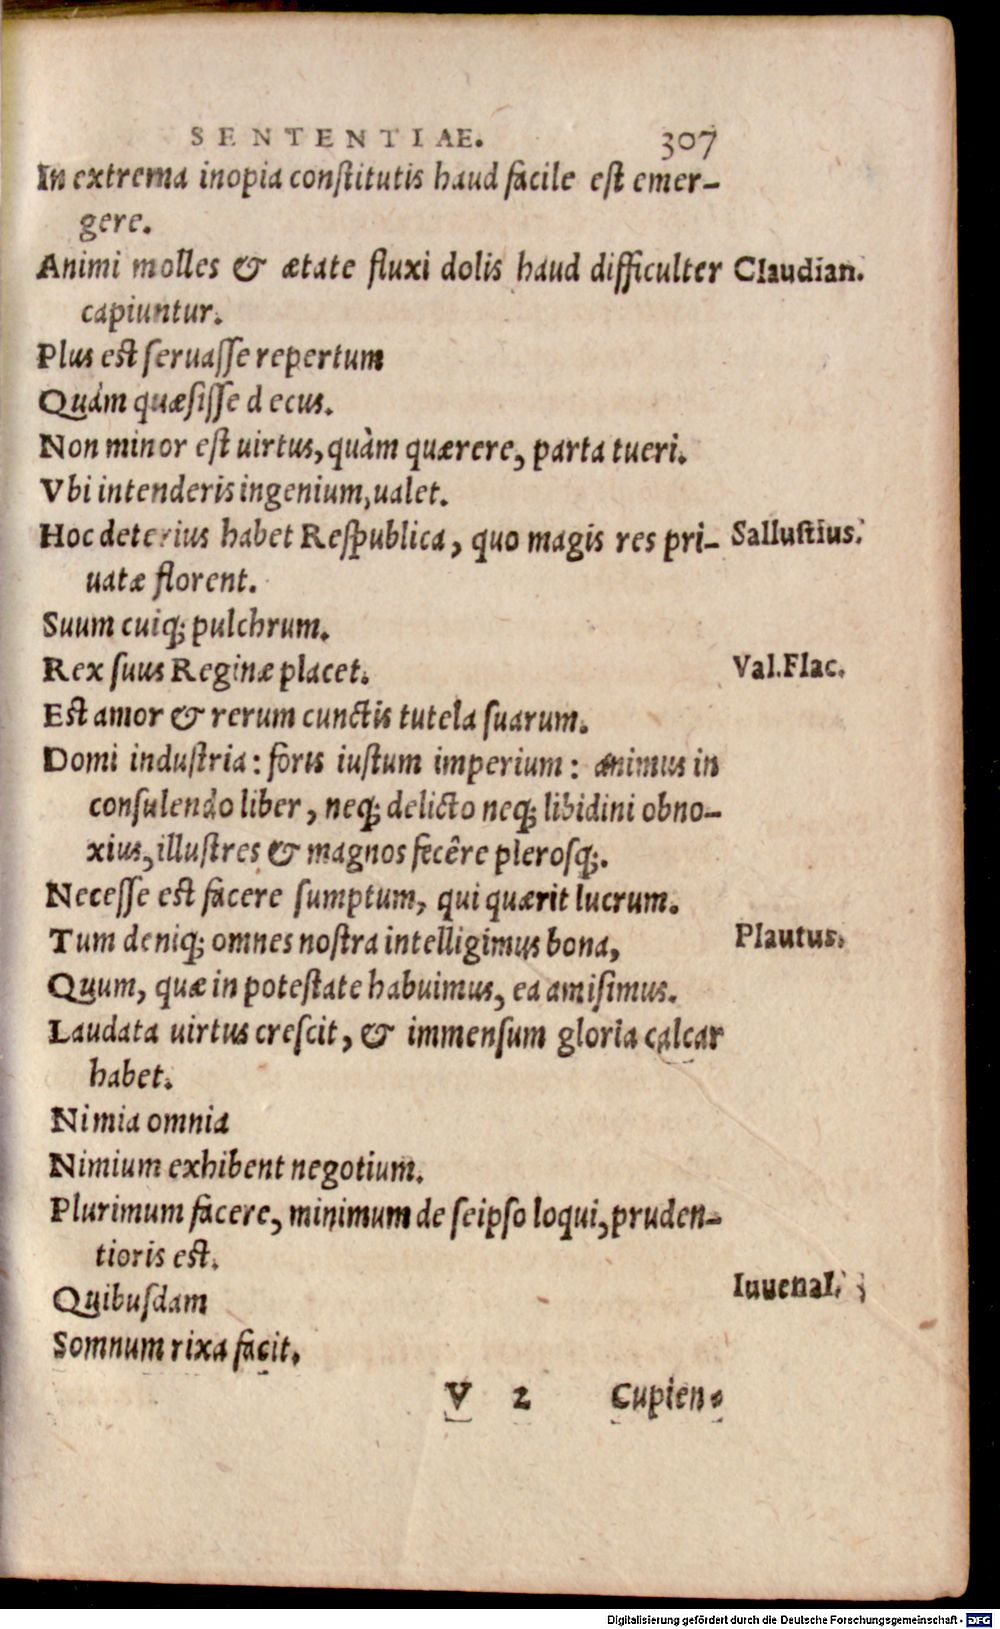 SENTENTIAE. 307
In extrema inopia constitutis haud facile est emer-
gere.
Animi molles & ætate fluxi dolis haud difficulter Claudian.
capiuntur.
Plus est seruasse repertum
Quàm quæsisse decus.
Non minor est uirtus, quàm quærere, parta tueri.
Vbi intenderis ingenium, ualet.
Hoc deterius habet Respublica, quo magis res pri- Sallustius.
uatæ florent.
Suum cuiq; pulchrum.
Rex suus Reginæ placet. Val. Flac.
Est amor & rerum cunctis tutela suarum.
Domi industria: foris iustum imperium: animus in
consulendo liber, neq; delicto neq; libidini obno-
xius, illustres & magnos fecêre plerosq;.
Necesse est facere sumptum, qui quærit lucrum.
Tum deniq; omnes nostra intelligimus bona, Plautus.
Quum, quæ in potestate habuimus, ea amisimus.
Laudata uirtus crescit, & immensum gloria calcar
habet.
Nimia omnia
Nimium exhibent negotium.
Plurimum facere, minimum de seipso loqui, pruden-
tioris est.
Quibusdam Iuuenal.
Somnum rixa facit.
V 2 Cupien-
Digitalisierung gefördert durch die Deutsche Forschungsgemeinschaft - DFG